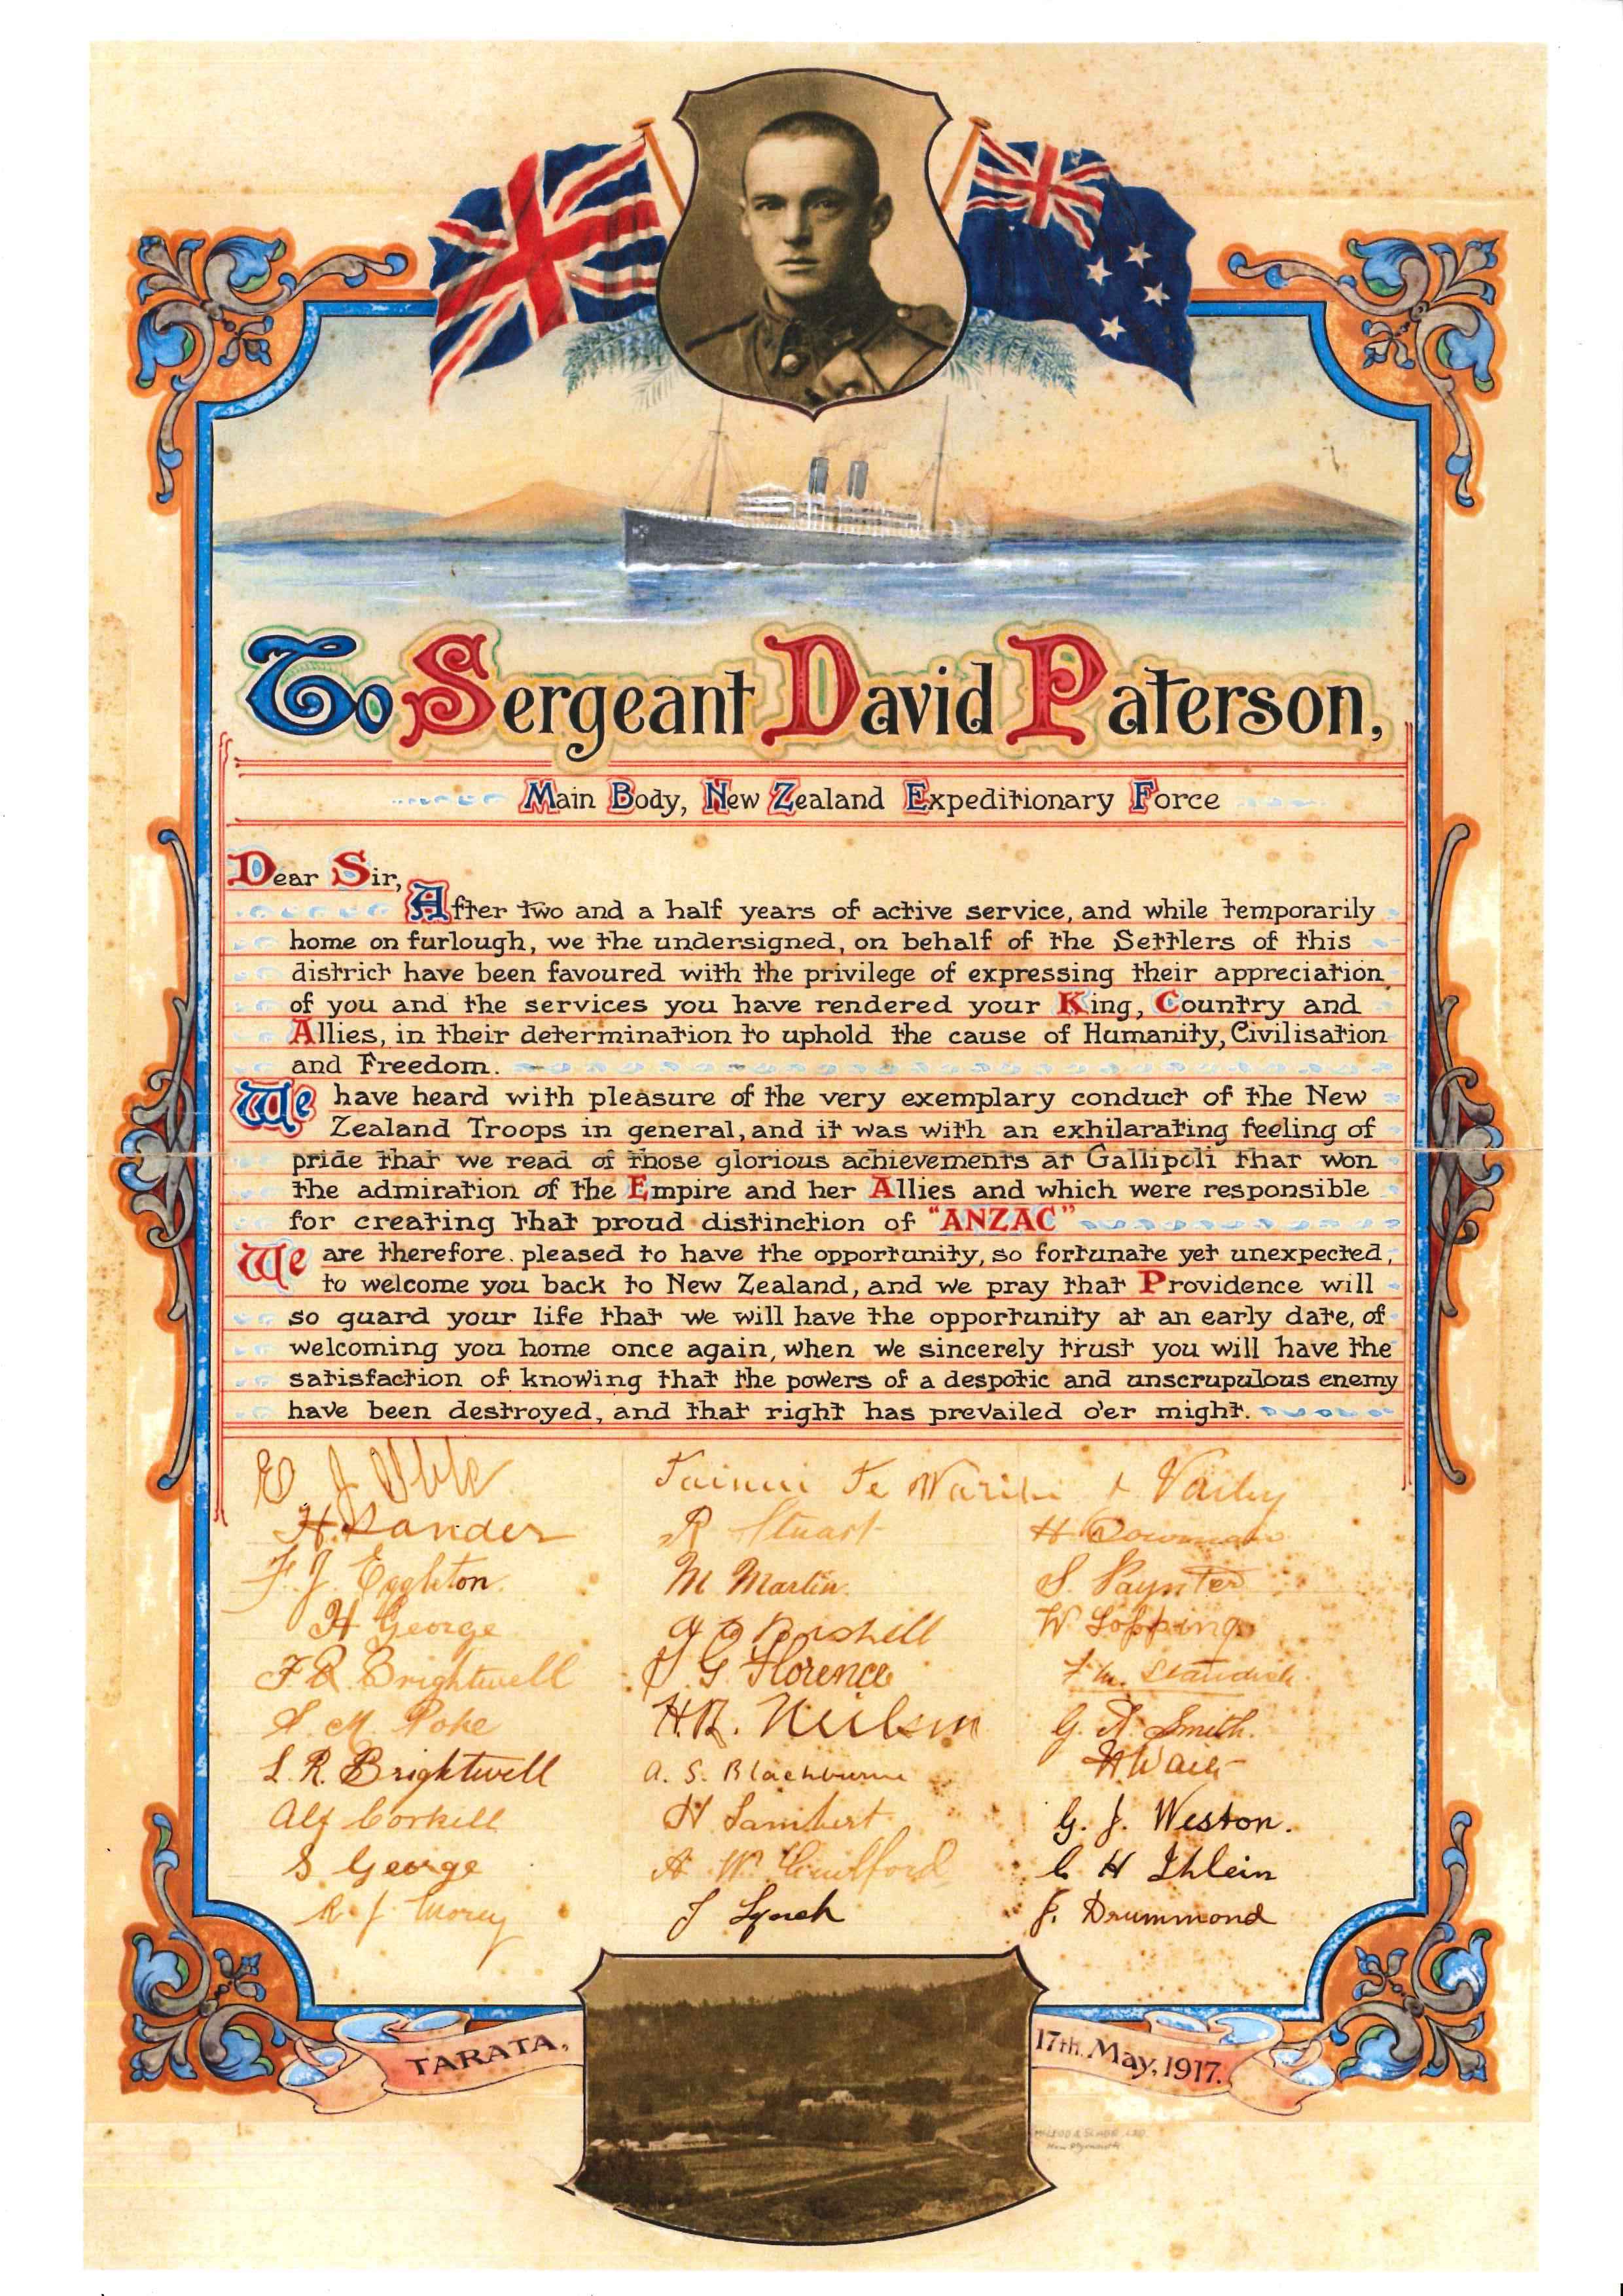 To Sergeant David Paterson,
Main Body, New Zealand Expeditionary Force
Dear Sir,
After two and a half years of active service, and while temporarily
home on furlough, we the undersigned, on behalf of the Settlers of this
district have been favoured with the privilege of expressing their appreciation
of you and the services you have rendered your King, Country and
Allies, in their determination to uphold the cause of Humanity, Civilisation
and Freedom.
We have heard with pleasure of the very exemplary conduct of the New
Zealand Troops in general, and it was with an exhilarating feeling of
pride that we read of those glorious achievements at Gallipoli that won
the admiration of the Empire and her Allies and which were responsible
for creating that proud distinction of "ANZAC"
We are therefore pleased to have the opportunity, so fortunate yet unexpected,
to welcome you back to New Zealand, and we pray that Providence will
so guard your life that we will have the opportunity at an early date, of
welcoming you home once again, when we sincerely trust you will have the
satisfaction of knowing that the powers of a despotic and unscrupulous enemy
have been destroyed, and that right has prevailed o'er might.
E J
H. Sander
F. J. Eggleton.
H George
F R Brightwell
M. Poke
L. R. Brightwell
Alf Corkill
S George
R J
Tainui Te
R Stuart
M Martin.
J G Florence
H.R. Neilsen
A. S. Blackburne
H Lambert
A W Guilford
J Lynch
H
S. Paynter
W Topping
F. W. Standish
G. A. Smith.
G. J. Weston.
C H Ihlein
J. Drummond
TARATA,
17th. May, 1917.
New Plymouth